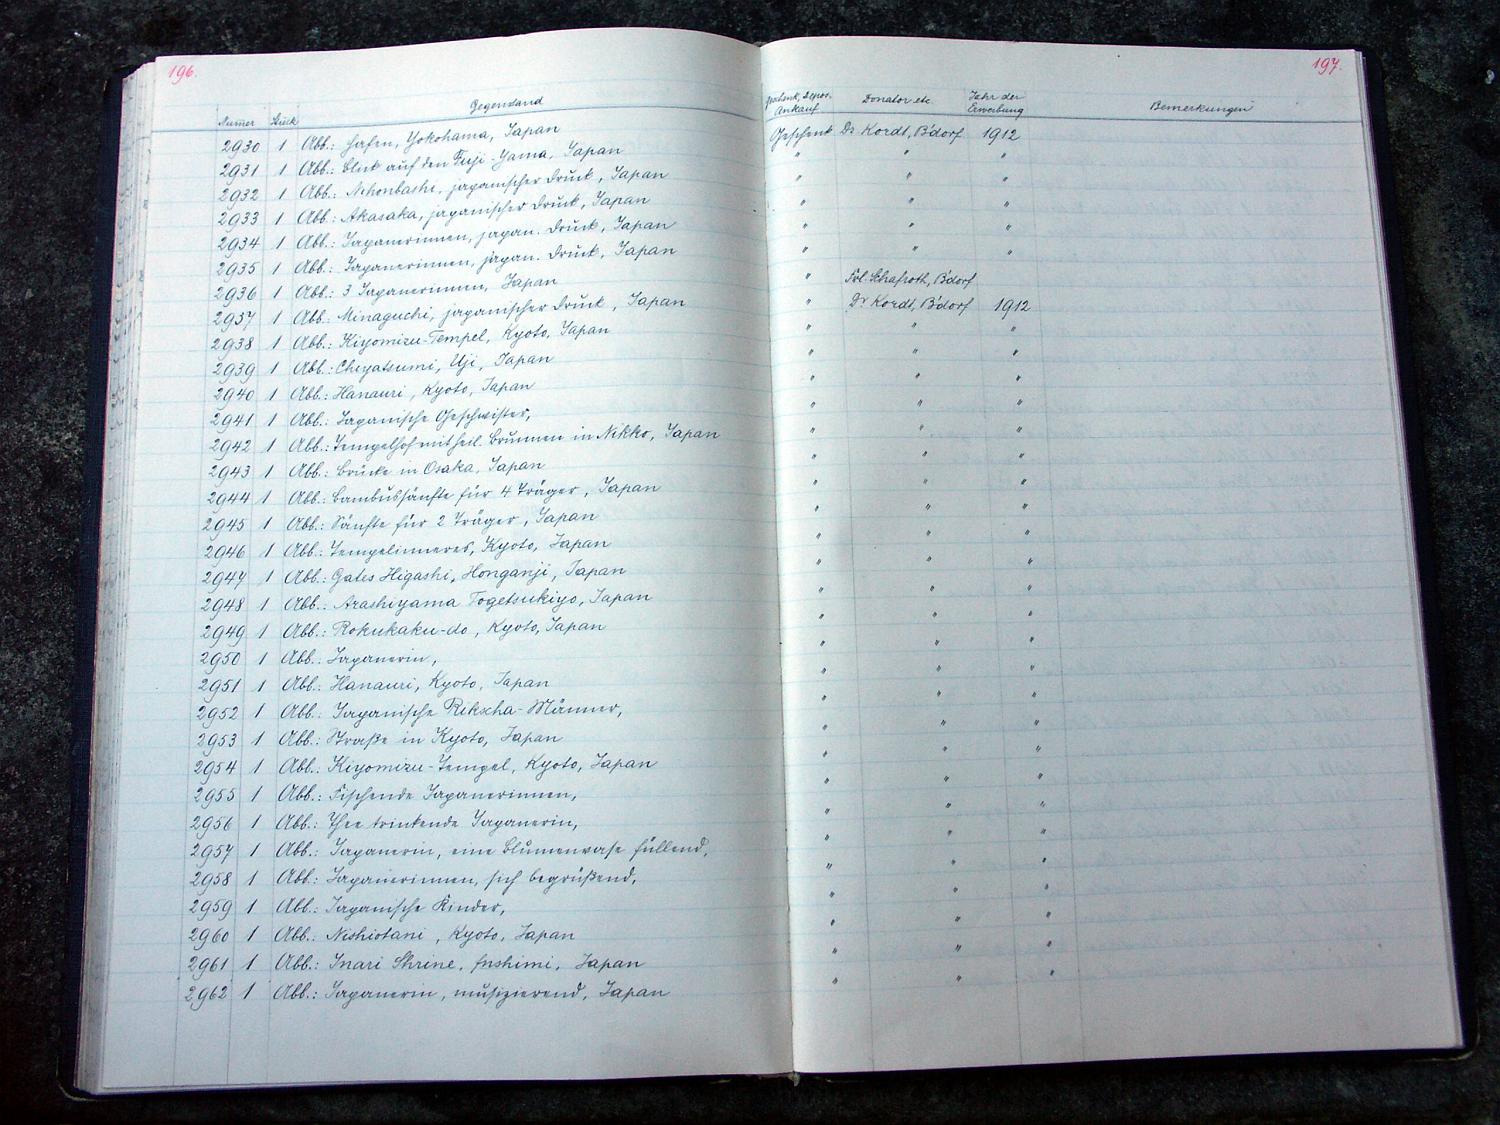 196.
197.
Numer Stück Gegenstand Geschenk, Depos. Ankauf Donator etc. Jahr der Erwerbung Bemerkungen
2930 1 Abb.: Hafen, Yokohama, Japan Geschenk Dr Kordt, B'dorf 1912
2931 1 Abb.: Blick auf den Fuji-Yama, Japan " " "
2932 1 Abb.: Nihonbashi, japanischer Druck, Japan " " "
2933 1 Abb.: Akasaka, japanischer Druck, Japan " " "
2934 1 Abb.: Japanerinnen, japan. Druck, Japan " " "
2935 1 Abb.: Japanerinnen, japan. Druck, Japan " " "
2936 1 Abb.: 3 Japanerinnen, Japan " Frl. Schafroth, B'dorf
2937 1 Abb.: Minaguchi, japanischer Druck, Japan " Dr Kordt, B'dorf 1912
2938 1 Abb.: Kiyomizu-Tempel, Kyoto, Japan " " "
2939 1 Abb.: Cheyatsumi, Uji, Japan " " "
2940 1 Abb.: Hanauri, Kyoto, Japan " " "
2941 1 Abb.: Japanische Geschwister, " " "
2942 1 Abb.: Tempelhof mit heil. Brunnen in Nikko, Japan " " "
2943 1 Abb.: Brücke in Osaka, Japan " " "
2944 1 Abb.: Bambussänfte für 4 Träger, Japan " " "
2945 1 Abb.: Sänfte für 2 Träger, Japan " " "
2946 1 Abb.: Tempelinneres, Kyoto, Japan " " "
2947 1 Abb.: Gates Higashi, Honganji, Japan " " "
2948 1 Abb.: Arashiyama Togetsukiyo, Japan " " "
2949 1 Abb.: Rokukaku-do, Kyoto, Japan " " "
2950 1 Abb.: Japanerin, " " "
2951 1 Abb.: Hanauri, Kyoto, Japan " " "
2952 1 Abb.: Japanische Rikscha-Männer, " " "
2953 1 Abb.: Straße in Kyoto, Japan " " "
2954 1 Abb.: Kiyomizu-Tempel, Kyoto, Japan " " "
2955 1 Abb.: Fischende Japanerinnen, " " "
2956 1 Abb.: Thee trinkende Japanerin, " " "
2957 1 Abb.: Japanerin, eine Blumenvase füllend, " " "
2958 1 Abb.: Japanerinnen, sich begrüßend, " " "
2959 1 Abb.: Japanische Kinder, " " "
2960 1 Abb.: Nishiotani, Kyoto, Japan " " "
2961 1 Abb.: Inari Shrine, Fushimi, Japan " " "
2962 1 Abb.: Japanerin, musizierend, Japan " " "